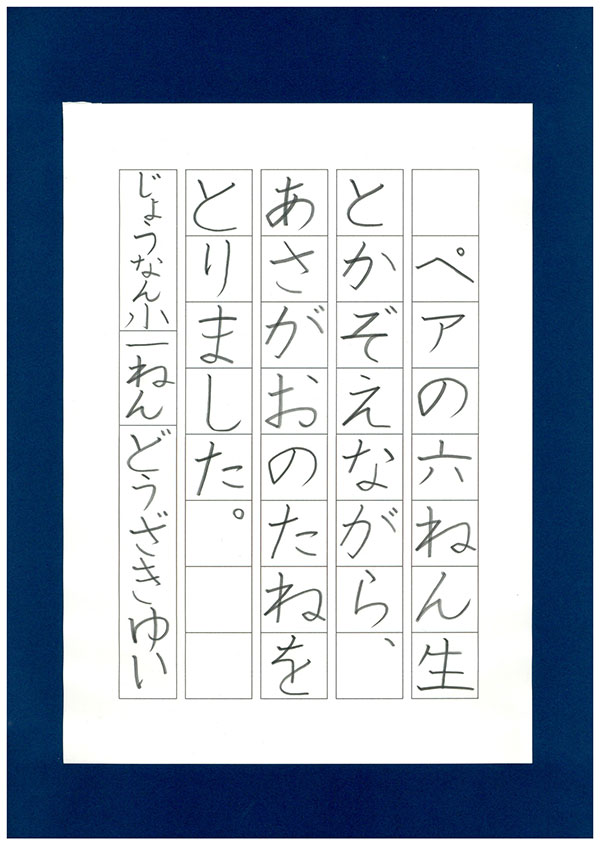 ペアの六ねん生
とかぞえながら、
あさがおのたねを
とりました。
じょうなん小一ねんどうざきゆい